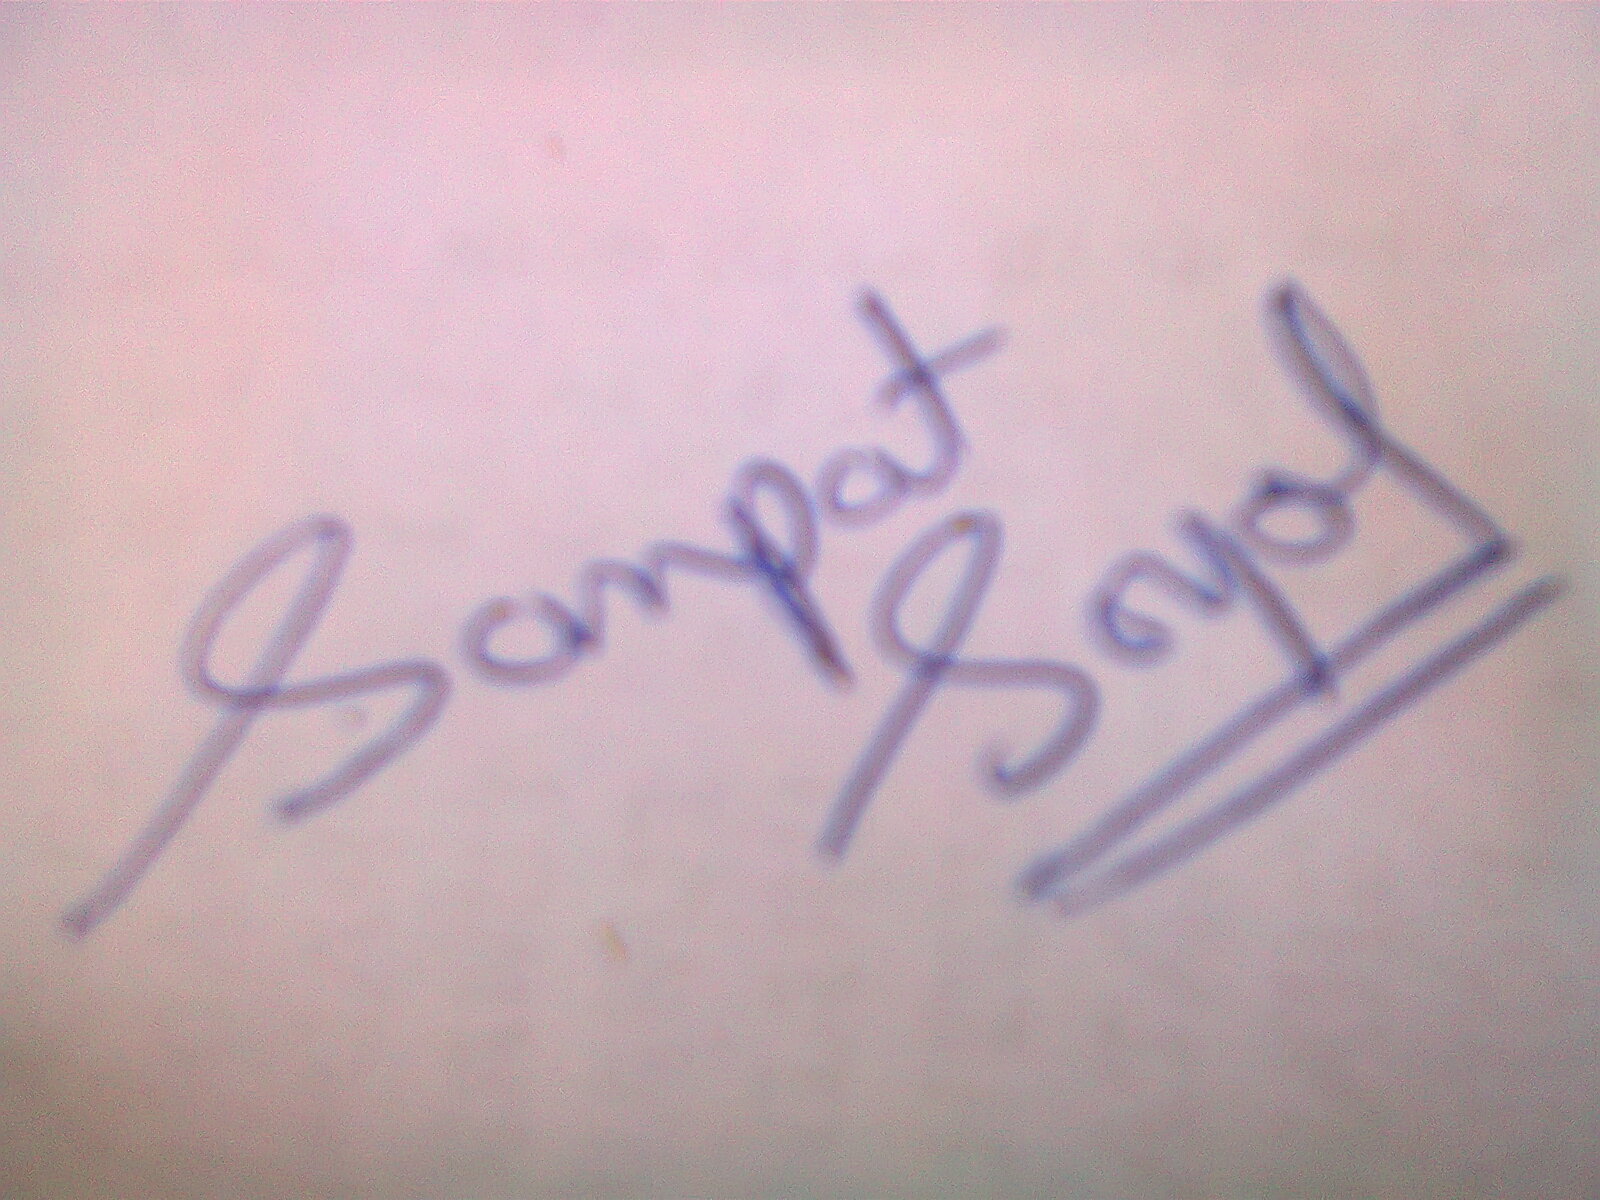 Sampat Syal